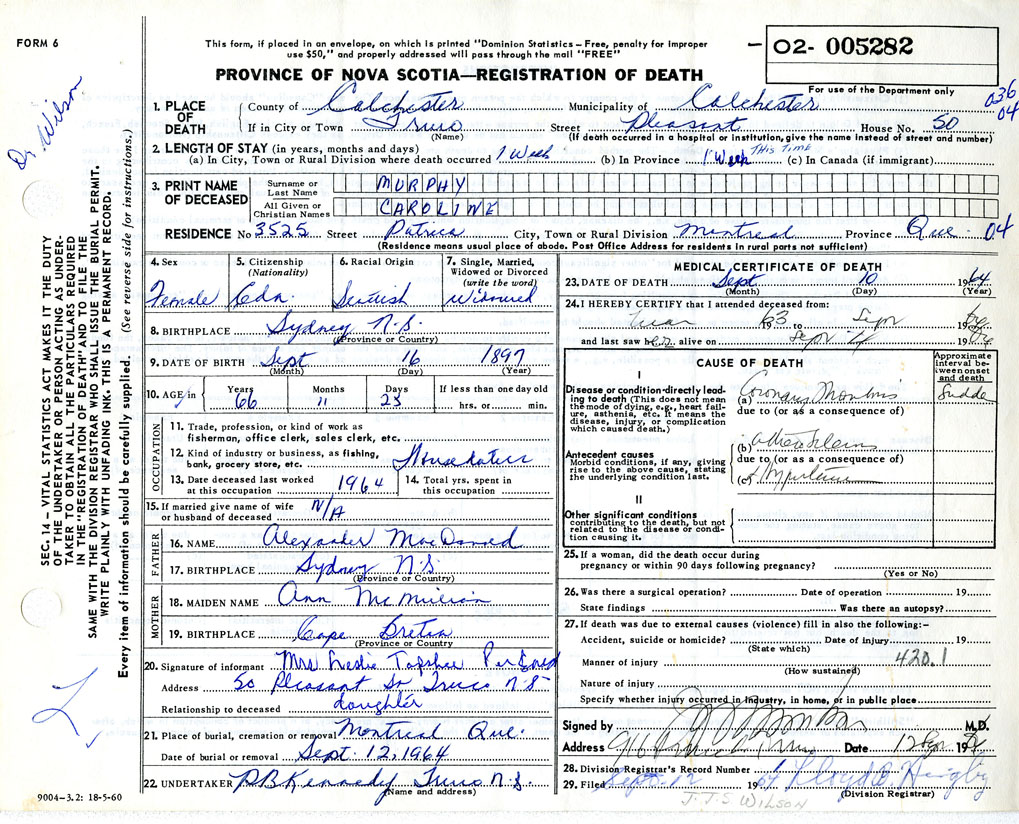 FORM 6
This form, if placed in an envelope, on which is printed "Dominion Statistics – Free, penalty for improper
use $50," and properly addressed will pass through the mail "FREE"
02- 005282
For use of the Department only
PROVINCE OF NOVA SCOTIA—REGISTRATION OF DEATH
036
04
Dr. Wilson
1. PLACE OF DEATH County of Colchester Municipality of Colchester
If in City or Town Truro Street Pleasant House No. 50
(Name) (If death occurred in a hospital or institution, give the name instead of street and number)
2. LENGTH OF STAY (in years, months and days)
(a) In City, Town or Rural Division where death occurred 1 Week (b) In Province 1 Week This Time (c) In Canada (if immigrant)
3. PRINT NAME OF DECEASED Surname or Last Name MURPHY
All Given or Christian Names CAROLINE
RESIDENCE No 3525 Street Patricia City, Town or Rural Division Montreal Province Que. 04
(Residence means usual place of abode. Post Office Address for residents in rural parts not sufficient)
4. Sex Female
5. Citizenship (Nationality) Cdn.
6. Racial Origin Scottish
7. Single, Married, Widowed or Divorced (write the word) Widowed
8. BIRTHPLACE Sydney N.S.
(Province or Country)
9. DATE OF BIRTH Sept 16 1897
(Month) (Day) (Year)
10. AGE in Years 66 Months 11 Days 23 If less than one day old hrs. or min.
OCCUPATION
11. Trade, profession, or kind of work as
fisherman, office clerk, sales clerk, etc.
12. Kind of industry or business, as fishing,
bank, grocery store, etc. House duties
13. Date deceased last worked
at this occupation 1964
14. Total yrs. spent in
this occupation
15. If married give name of wife
or husband of deceased N/A
FATHER
16. NAME Alexander MacDonald
17. BIRTHPLACE Sydney N.S.
(Province or Country)
MOTHER
18. MAIDEN NAME Ann McMillian
19. BIRTHPLACE Cape Breton
(Province or Country)
20. Signature of informant Mrs Leslie
Address 50 Pleasant St Truro N.S
Relationship to deceased daughter
21. Place of burial, cremation or removal Montreal Que.
Date of burial or removal Sept. 12, 1964
22. UNDERTAKER P.B. Kennedy Truro N.S.
(Name and address)
9004–3.2: 18-5-60
SEC. 14 – VITAL STATISTICS ACT MAKES IT THE DUTY
OF THE UNDERTAKER OR PERSON ACTING AS UNDER-
TAKER TO OBTAIN ALL THE PARTICULARS REQUIRED
IN THE "REGISTRATION OF DEATH" AND TO FILE THE
SAME WITH THE DIVISION REGISTRAR WHO SHALL ISSUE THE BURIAL PERMIT.
WRITE PLAINLY WITH UNFADING INK. THIS IS A PERMANENT RECORD.
Every item of information should be carefully supplied. (See reverse side for instructions.)
MEDICAL CERTIFICATE OF DEATH
23. DATE OF DEATH Sept 10 1964
(Month) (Day) (Year)
24. I HEREBY CERTIFY that I attended deceased from:
63 to Sept 19
and last saw her alive on Sept 4 19
CAUSE OF DEATH
Approximate interval between onset and death
I
Disease or condition directly lead-
ing to death (This does not mean
the mode of dying, e.g., heart fail-
ure, asthenia, etc. It means the
disease, injury, or complication
which caused death.)
(a) Coronary
due to (or as a consequence of)
Antecedent causes
Morbid conditions, if any, giving
rise to the above cause, stating
the underlying condition last.
(b)
due to (or as a consequence of)
(c)
II
Other significant conditions
contributing to the death, but not
related to the disease or condi-
tion causing it.
25. If a woman, did the death occur during
pregnancy or within 90 days following pregnancy?
(Yes or No)
26. Was there a surgical operation? Date of operation 19
State findings Was there an autopsy?
27. If death was due to external causes (violence) fill in also the following:–
Accident, suicide or homicide? Date of injury 19
(State which)
Manner of injury 420.1
(How sustained)
Nature of injury
Specify whether injury occurred in industry, in home, or in public place
Signed by M.D.
Address Date 12 Sep 19
28. Division Registrar's Record Number
29. Filed Sept. 12 1964 Lloyd
(Division Registrar)
J.J.S WILSON